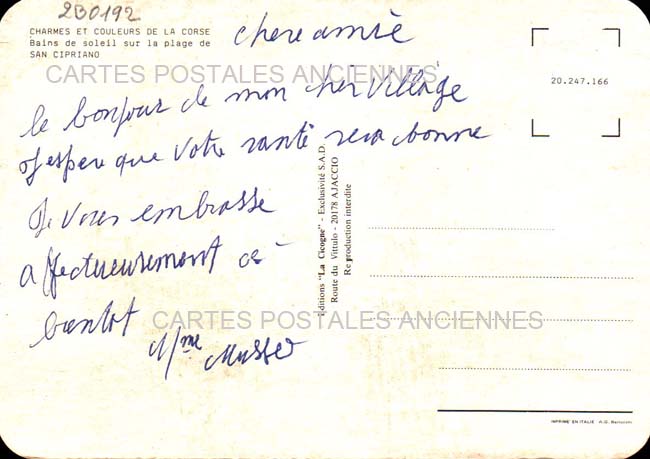 2B0192
CHARMES ET COULEURS DE LA CORSE
Bains de soleil sur la plage de
SAN CIPRIANO
chere amie
CARTES POSTALES ANCIENNES
20.247.166
le bonjour de mon cher village
j'espere que votre santé sera bonne
Je vous embrasse
affectueusement a
bientot
Mme
Editions "La Cicogne" - Exclusivité S.A.D.
Route du Vittulo - 20178 AJACCIO
Reproduction interdite
CARTES POSTALES ANCIENNES
IMPRIMÉ EN ITALIE